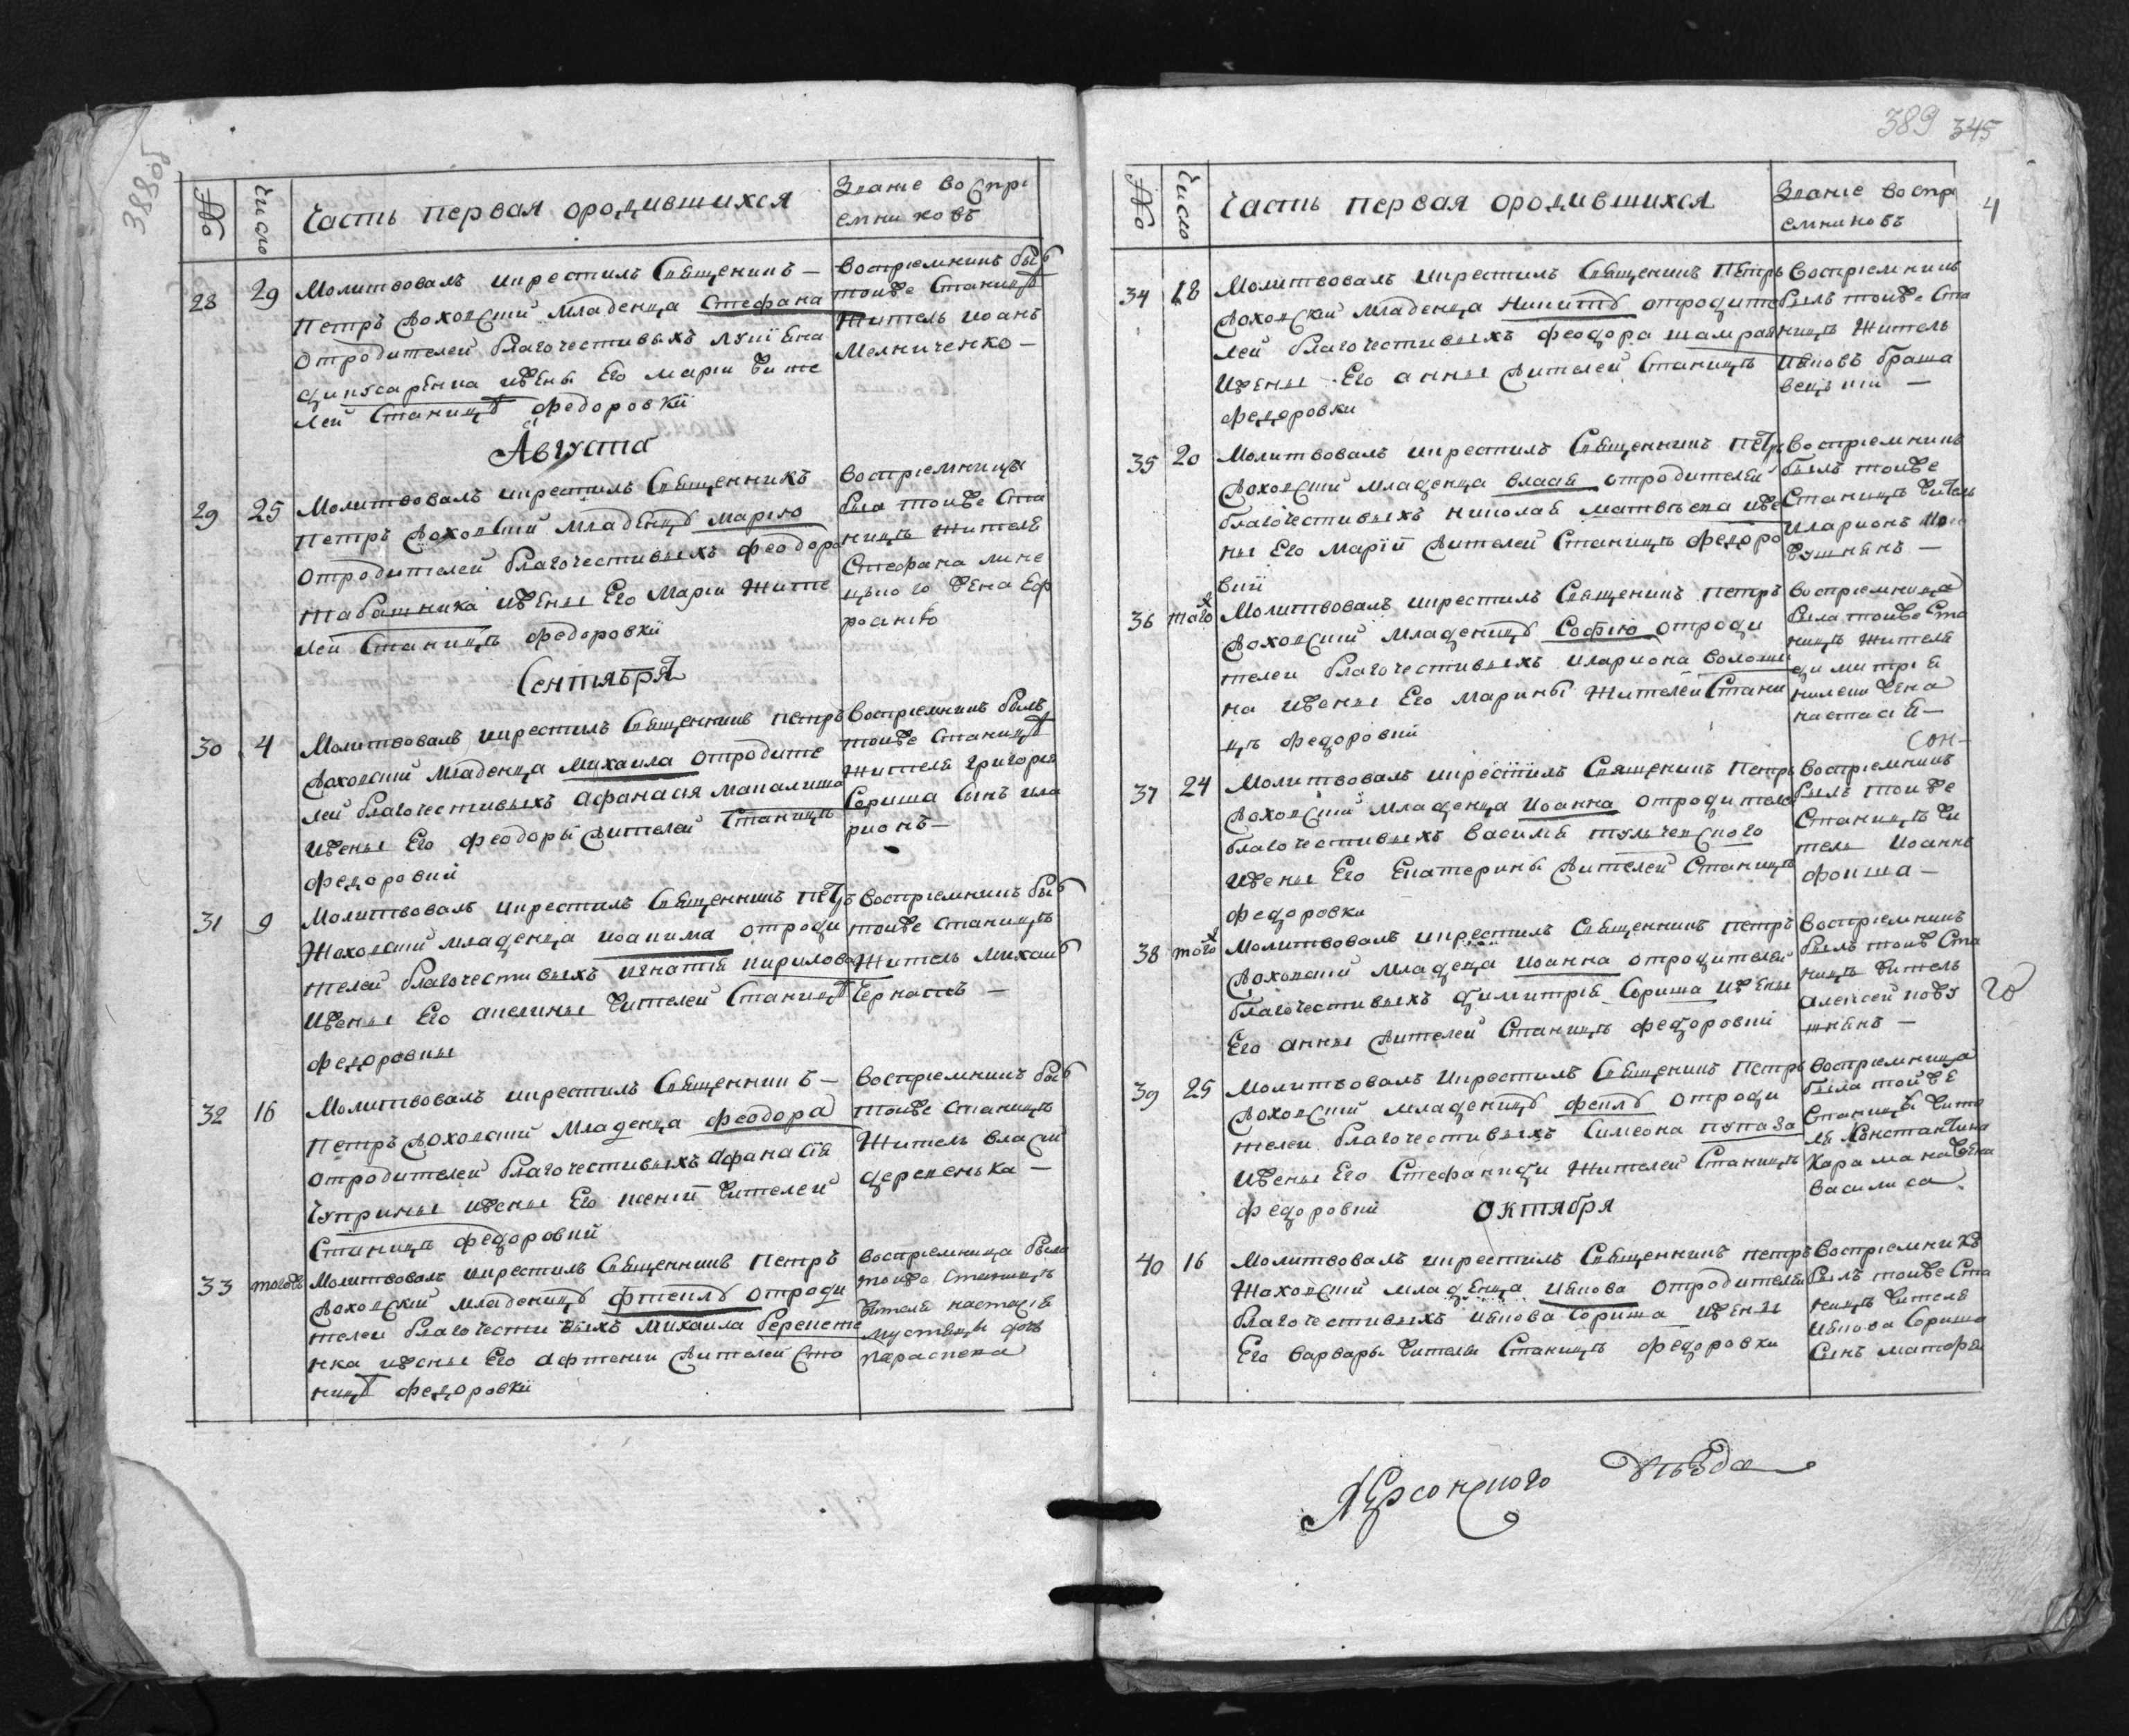 388об
№
Число
Часть первая ородившихся
Званіе воспрі
емниковъ
28 29 Молитвовалъ икрестилъ Священикъ —
Петръ Жоховскій младенца Стефана
отродителей благочестивыхъ Лукіена
ижены Его Маріи жите
лей Станицѣ Федоровкїи
воспріемникъ былъ
тойже Станицѣ
житель Иоанъ
Мелниченко —
Августа
29 25 Молитвовалъ икрестилъ Священникъ
Петръ Жоховскій младенцу Марію
отродителей благочестивыхъ Феодора
табашника ижены Его Маріи жите
лей Станицѣ Федоровкїи
воспріемница
была тойже Ста
ницѣ жителя
Стефана лине
цкого жена Еф
росинію
Сентября
30 4 Молитвовалъ икрестилъ Священникъ Петръ
Жоховскій младенца Михаила отродите
лей благочестивыхъ Афанасія Макалиша
ижены Его Феодоры жителей Станицѣ
Федоровкїи
Воспріемникъ былъ
тойже Станицѣ
жителя Григорія
Сориша Сынъ Ила
ріонъ —
31 9 Молитвовалъ икрестилъ Священникъ Петръ
Жоховскій младенца Иоакима отроди
телей благочестивыхъ Игнатія Кирилова
ижены Его Акелины жителей Станицѣ
Федоровкы
Воспріемникъ былъ
тойже Станицѣ
житель Михаилъ
Чернаивъ —
32 16 Молитвовалъ икрестилъ Священникъ —
Петръ Жоховскій младенца Феодора
отродителей благочестивыхъ Афанасія
Чуприны ижены Его Ксеніи жителей
Станицѣ Федоровкїи
воспріемникъ былъ
тойже Станицѣ
житель Власій
деревенька —
33 тогожъ Молитвовалъ икрестилъ Священникъ Петръ
Жоховскій младеницу Фтеклу отроди
телей благочестивыхъ Михаила берестe
нка ижены Его Афтеніи жителей Ста
ницѣ Федоровкїи
воспріемница была
тойже Станицѣ
жителя Настасія
дочь
параскева
389 345
4
№
Число
Часть первая ородившихся
Званіе воспрі
емниковъ
34 18 Молитвовалъ икрестилъ Священикъ Петръ
Жоховскій младенца Никиту отродите
лей благочестивыхъ Феодора шамрая
ижены Его Анны жителей Станицѣ
Федоровки
воспріемникъ
былъ тойже Ста
ницѣ житель
Иаковъ браша
вецкїй —
35 20 Молитвовалъ икрестилъ Священникъ Петръ
Жоховскій младенца Власія отродителей
благочестивыхъ Николая матвѣева иже
ны Его Маріи жителей Станицѣ Федоро
вкїи
Воспріемникъ
былъ тойже
Станицѣ житель
Иларіонъ
36 тогож Молитвовалъ икрестилъ Священикъ Петръ
Жоховскій младеницу Софію отроди
телей благочестивыхъ Илариона волоши
на ижены Его Марины жителей Стани
цѣ Федоровкїи
воспріемница
была тойже Ста
ницѣ жителя
Димитрія
жена
Настасія —
Сен —
37 24 Молитвовалъ икрестилъ Священикъ Петръ
Жоховскій младенца Иоанна отродителей
благочестивыхъ Василія тульчевского
ижены Его Екатерины жителей Станицѣ
Федоровки
воспріемникъ
былъ тойже
Станицѣ жи
тель Иоаннъ
фоиша —
38 тогож Молитвовалъ икрестилъ Священникъ Петръ
Жоховскій младенца Иоанна отродителей
благочестивыхъ Димитрія Сориша ижены
Его Анны жителей Станицѣ Федоровкїи
воспріемникъ
былъ тойж Ста
ницѣ житель
Алексей
39 25 Молитвовалъ икрестилъ Священикъ Петръ
Жоховскій младеницу Феклу отроди
телей благочестивыхъ Симеона пугаза
ижены Его Стефаниды жителей Станицѣ
Федоровкїи
воспріемница
была тойже
Станицѣ жите
ля Константина
Карамана жена
Василиса
Октября
40 16 Молитвовалъ икрестилъ Священникъ Петръ
Жоховскій младенца Иякова отродителей
благочестивыхъ Иякова Сориша ижены
Его Варвары жители Станицѣ Федоровки
Воспріемникъ
былъ тойже Ста
ницѣ жителя
Иякова Сориша
Сынъ Матфей
Херсонского уѣзда